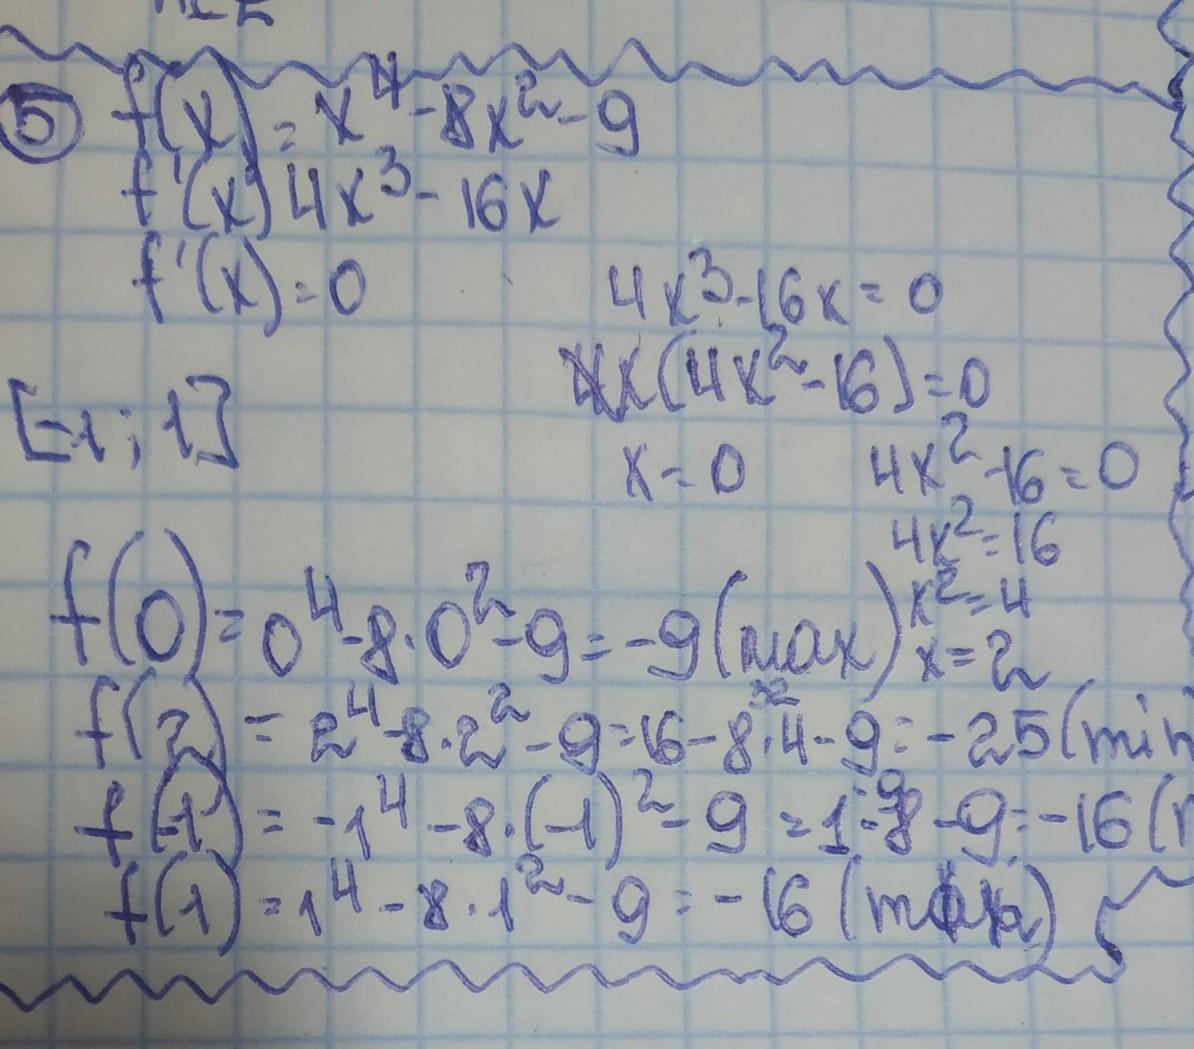 5 f(x) = x⁴ - 8x² - 9
f'(x) 4x³ - 16x
f'(x) = 0
4x³ - 16x = 0
x(4x² - 16) = 0
[-1; 1]
x = 0 4x² - 16 = 0
4x² = 16
x² = 4
x = 2
f(0) = 0⁴ - 8·0² - 9 = -9 (max)
f(2) = 2⁴ - 8·2² - 9 = 16 - 8·4 - 9 = -25 (min
f(-1) = -1⁴ - 8·(-1)² - 9 = 1 - 8 - 9 = -16 (
f(1) = 1⁴ - 8·1² - 9 = -16